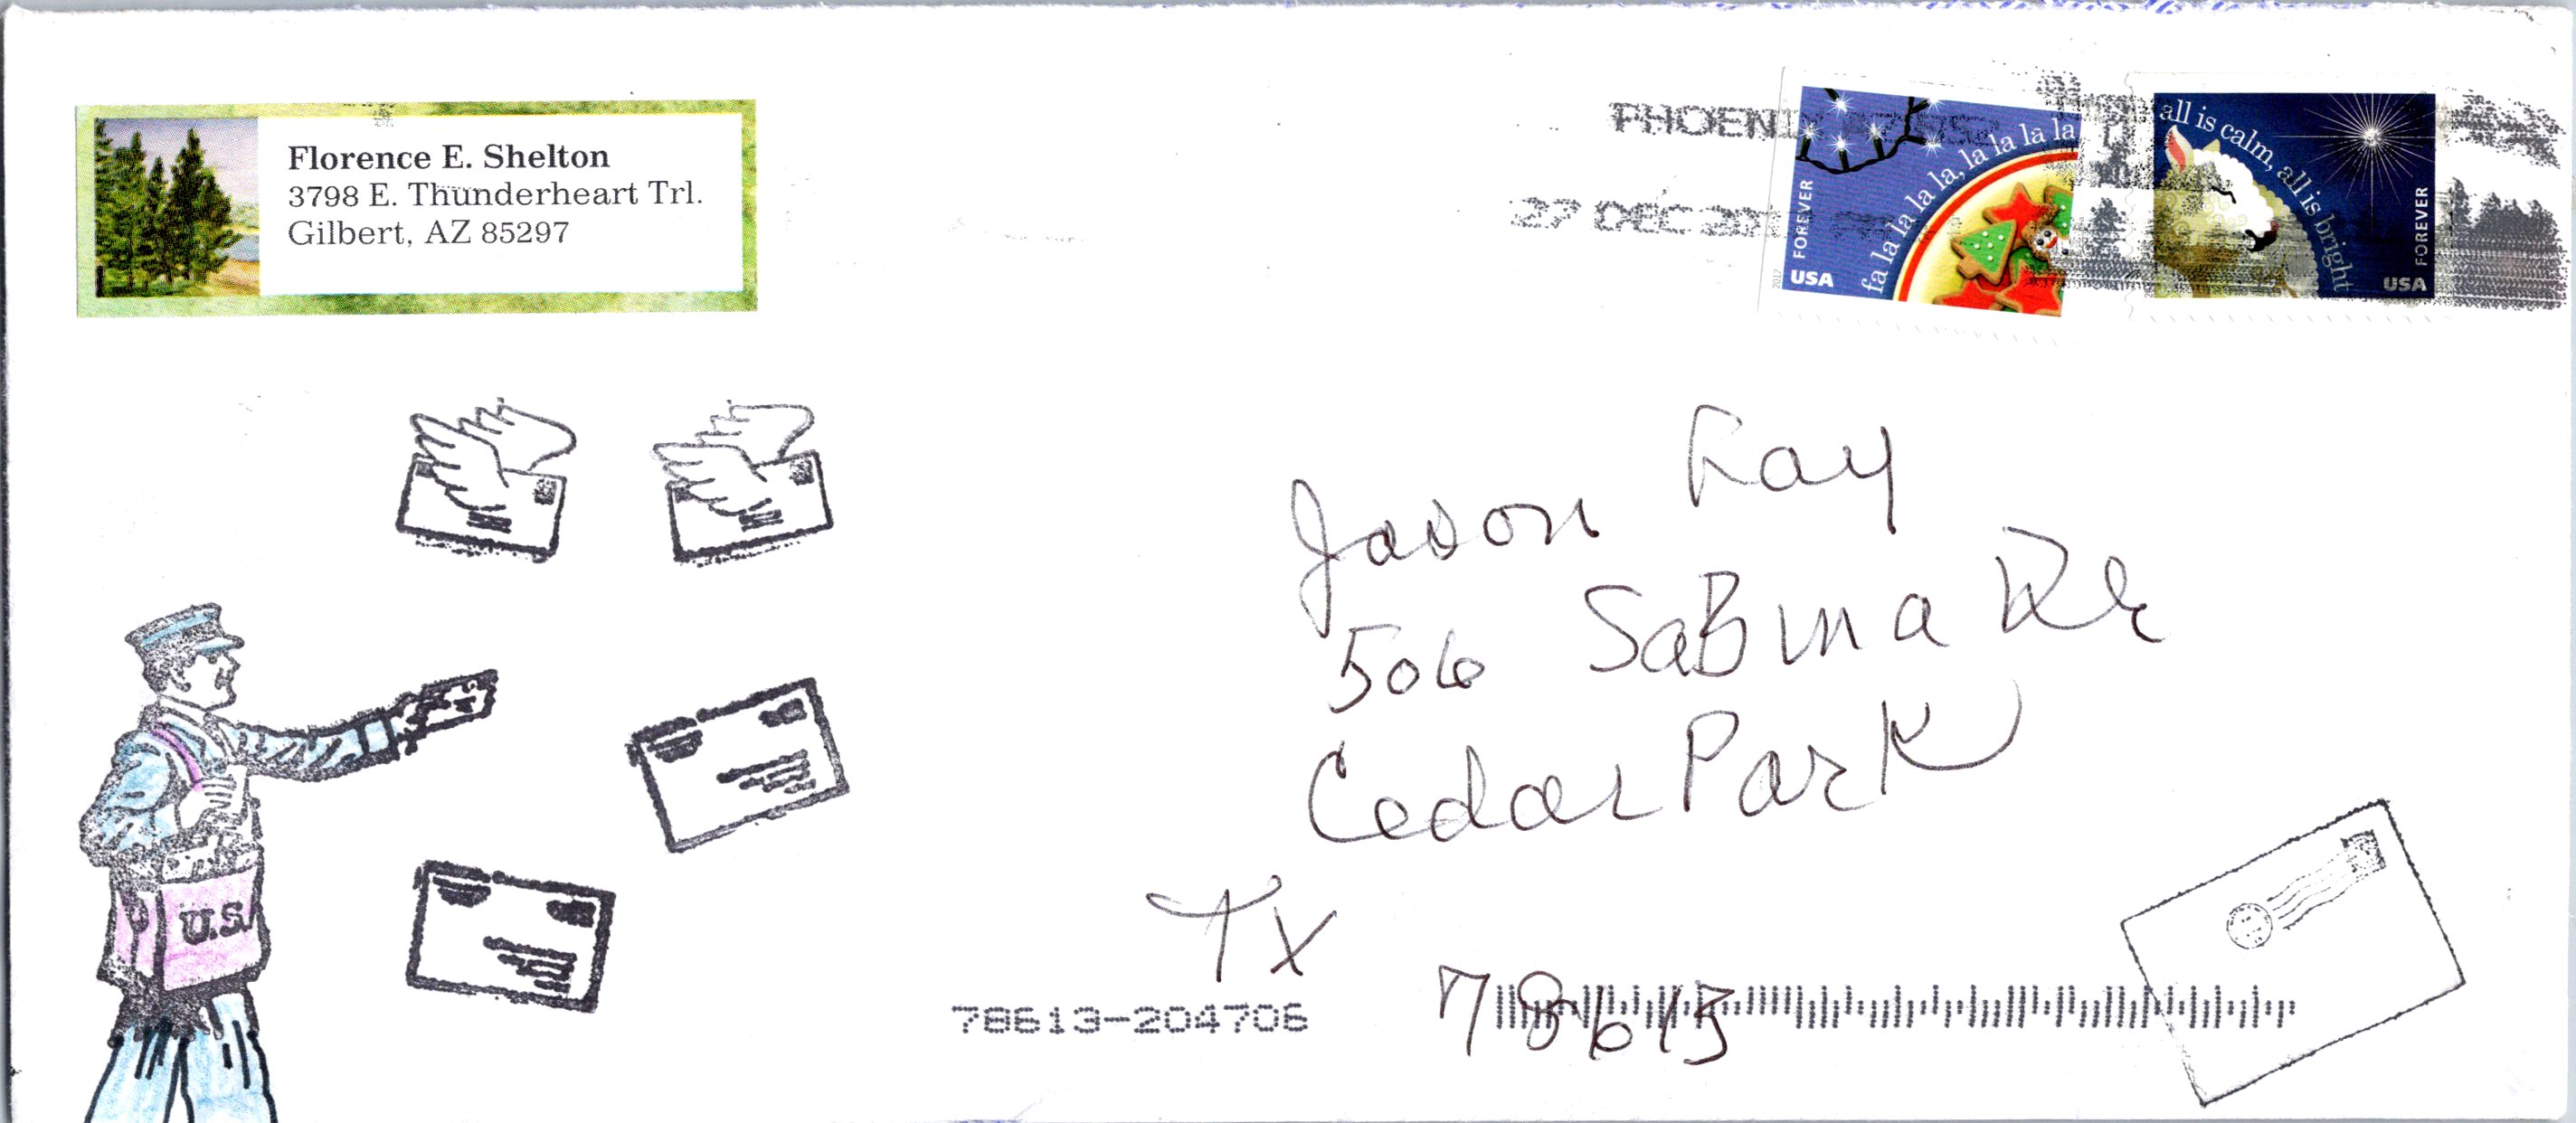 Florence E. Shelton
3798 E. Thunderheart Trl.
Gilbert, AZ 85297
27 DEC
fa la la la la, la la la la
FOREVER
USA
2017
all is calm, all is bright
FOREVER
USA
Jason Ray
506 SaBina Dr
Cedar Park
TX
78613
78613-204706
U.S.